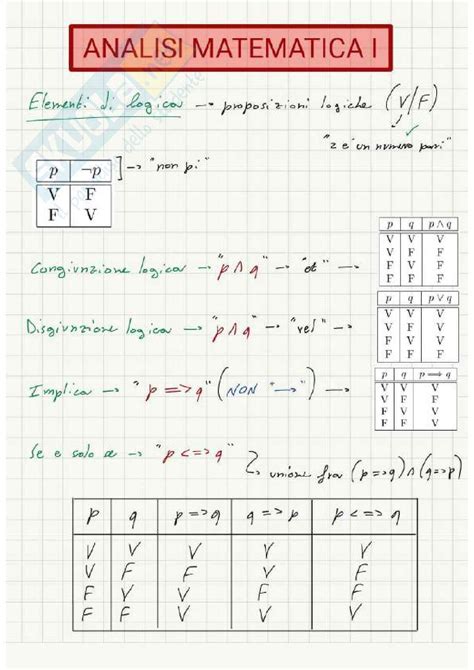 ANALISI MATEMATICA I
Elementi di logica → proposizioni logiche (V/F)
"2 è un numero pari" ✓
p ¬p
V F
F V
] → "non pi"
Congiunzione logica → "p ∧ q" → "et" →
p q p ∧ q
V V V
V F F
F V F
F F F
Disgiunzione logica → "p ∧ q" → "vel" →
p q p ∨ q
V V V
V F V
F V V
F F F
Implica → "p => q" (NON "→") →
p q p ⟹ q
V V V
V F F
F V V
F F V
Se e solo se → "p <=> q"
unione fra (p => q) ∧ (q => p)
p q p => q q => p p <=> q
V V V V V
V F F V F
F V V F F
F F V V V